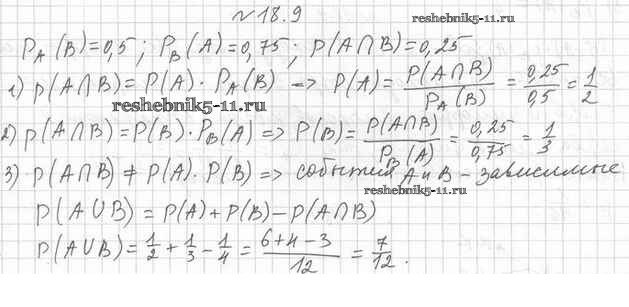 №18.9
reshebnik5-11.ru
P_A(B)=0,5; P_B(A)=0,75; P(A∩B)=0,25
1) P(A∩B)=P(A)·P_A(B) => P(A)=P(A∩B)/P_A(B)=0,25/0,5=1/2
reshebnik5-11.ru
2) P(A∩B)=P(B)·P_B(A)=>P(B)=P(A∩B)/P_B(A)=0,25/0,75=1/3
3) P(A∩B)≠P(A).P(B)=> события A и B - зависимые
reshebnik5-11.ru
P(A∪B)=P(A)+P(B)-P(A∩B)
P(A∪B)=1/2+1/3-1/4=(6+4-3)/12=7/12.